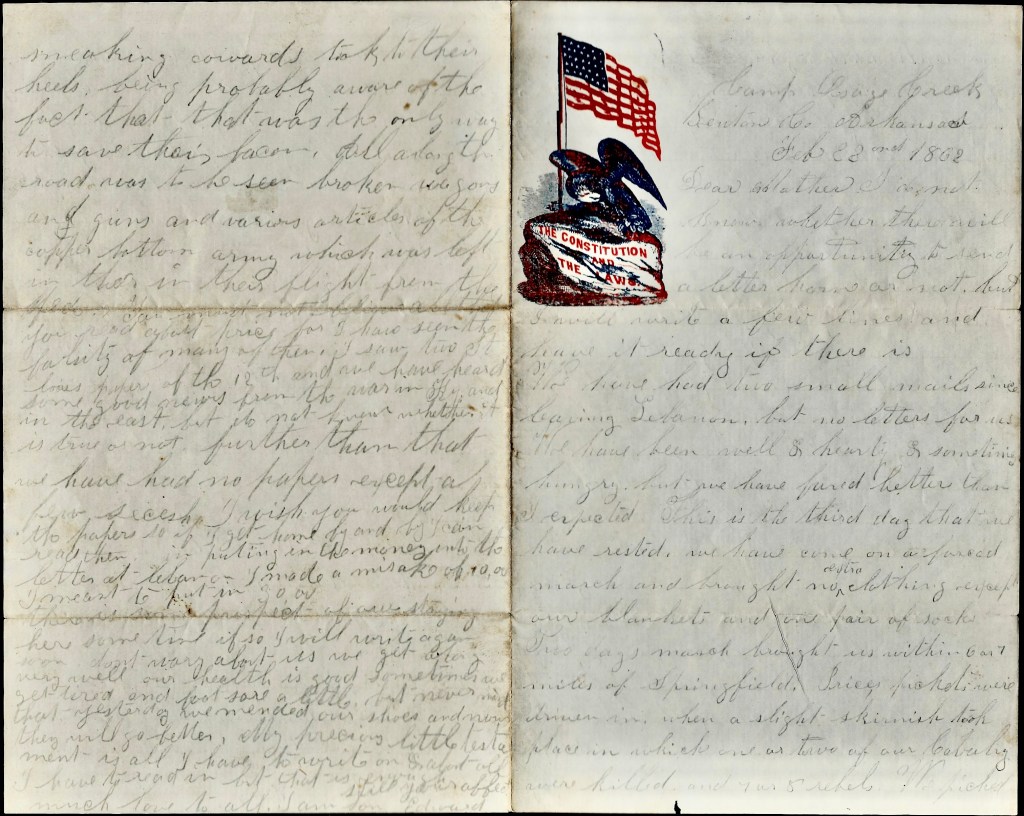 Camp Osage Creek
Benton Co Arkansas
Feb 22nd 1862
Dear Mother I do not
know whether there will
be an opportunity to send
a letter home or not, but
THE CONSTITUTION
AND
THE LAWS
I will write a few lines and
have it ready if there is
We have had two small mails since
leaving Lebanon, but no letters for us
We have been well & hearty & sometimes
hungry, but we have fared better than
I expected. This is the third day that we
have rested, we have come on a forced
march and brought no extra clothing except
our blankets and one pair of socks
Two days march brought us within 6 or 7
miles of Springfield, Prices pickets were
driven in, when a slight skirmish took
place in which one or two of our Cavalry
were killed and 4 or 5 rebels We picked
sneaking cowards took to their
heels, being probably aware of the
fact that that was the only way
to save their bacon, All along the
road was to be seen broken wagons
and guns and various articles of the
copper bottom army which was left
in their in their flight from the
for read at price for I have seen the
falsity of many of them, I saw two St
Louis papers of the 12th and we have heard
some good news from the war in Ky, and
in the east, but do not know whether it
is true or not. further than that
we have had no papers except a
few secesh, I wish you would keep
the papers so if I get home by and by I can
read them in putting in the money into the
letter at Lebanon I made a mistake of 10,00
I meant to put in 30,00
there is some prospect of our staying
here some time if so I will write again
soon dont worry about us we get along
very well our health is good Sometimes we
get tired and foot sore a little, but never mind
that yesterday we mended our shoes and now
they will go better, My precious little testa
ment is all I have to write on & about all
I have to read in but that is enough
much love to all, I am your son Edward
still yours affec